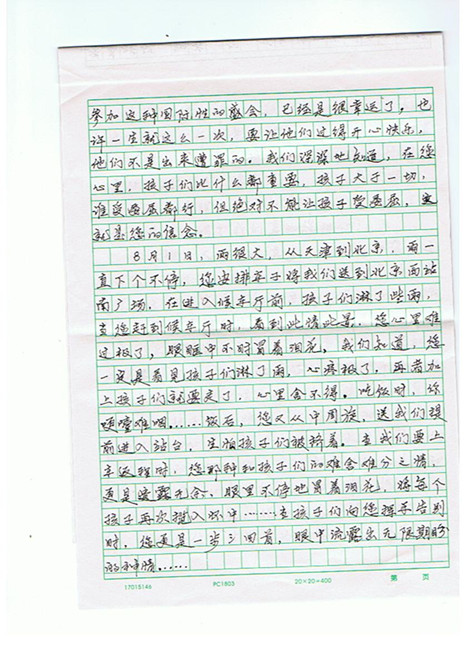 参加这种国际性的盛会，已经是很幸运了，也
许一生就这么一次，要让他们过得开心快乐，
他们不是出来遭罪的。我们深深地知道，在您
心里，孩子们比什么都重要，孩子大于一切，
谁受委屈都行，但绝对不能让孩子受委屈，这
就是您的信念。
8月1日，雨很大，从天津到北京，雨一
直下个不停，您安排车子将我们送到北京西站
南广场，在进入候车厅前，孩子们淋了些雨，
当您赶到候车厅时，看到此情此景，您心里难
过极了，眼眶中不时冒着泪花，我们知道，您
一定是看见孩子们淋了雨，心疼极了，再加
上孩子们就要走了，心里舍不得。吃饭时，你
哽噎难咽……饭后，您又从中周旋，送我们提
前进入站台，生怕孩子们被挤着。当我们要上
车返程时，您那种和孩子们的难舍难分之情，
更是暴露无余、眼里不停地冒着泪花，将每个
孩子再次搂入怀中……当孩子们向您挥手告别
时，您更是一步三回首，眼中流露出无限期盼
的神情……
1701S146 PC1803 20×20=400 第 页